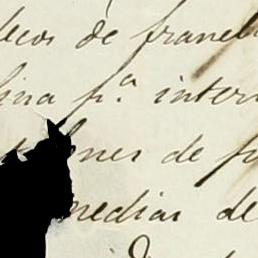 lecos de franel
lina p.ª inter
nes de p
medias de